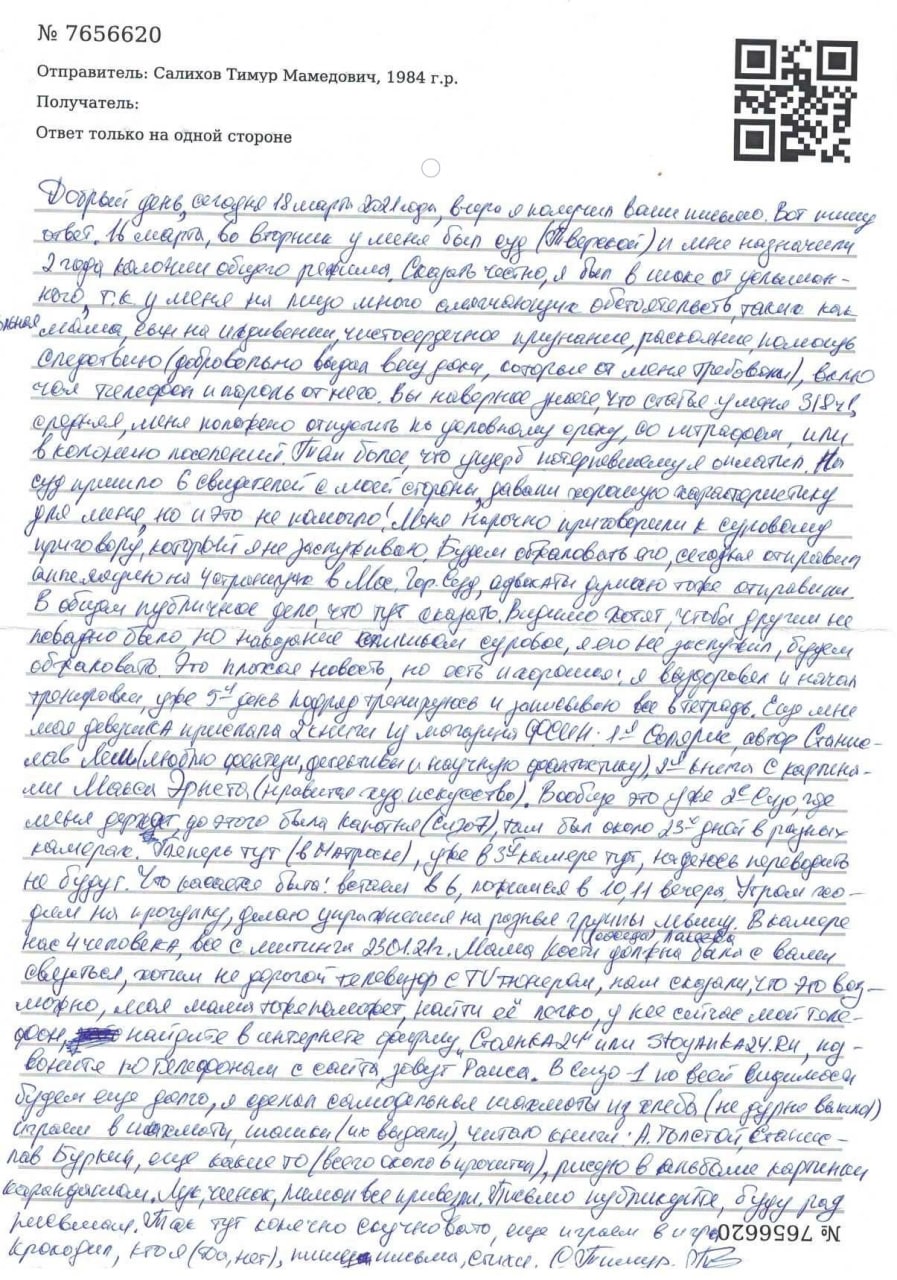 № 7656620
Отправитель: Салихов Тимур Мамедович, 1984 г.р.
Получатель:
Ответ только на одной стороне
Добрый день, сегодня 18 марта 2021 года, вчера я получил ваши письмо. Вот пишу
ответ. 16 марта, во вторник у меня был суд (Тверской) и мне назначили
2 года колонии общего режима. Сказать честно, я был в шоке от услышан-
ного, т.к у меня на лицо много смягчающих обстоятельств, такие как
больная мама, сын на иждивении, чистосердечное признание, раскаяние, помощь
следствию (добровольно выдал все, которые от меня требовали), вклю
чая телефон и пароль от него. Вы наверное знаете, что статья у меня 318 ч1,
средняя, меня положено отпустить по условному сроку, со штрафом, или
в колонию поселений. Тем более, что ущерб потерпевшему я оплатил. На
суд пришло 6 свидетелей с моей стороны, давали хорошую характеристику
для меня, но и это не помогло! Меня нарочно приговорили к суровому
приговору, который я не заслуживаю. Будем обжаловать его, сегодня отправил
аппеляцию на 4 страницы в Мос. Гор. Суд, адвокаты думаю тоже отправили.
В общем публичное дело, что тут сказать. Видимо хотят, чтобы другим не
повадно было, но наказание слишком суровое, я его не заслужил, будем
обжаловать. Это плохая новость, но есть и хорошая: я выздоровел и начал
тренировки, уже 5й день подряд тренируюсь и записываю все в тетрадь. Еще мне
моя девушка прислала 2 книги из магазина ФСИН. 1я Солярис, автор Станис-
лав Лем (люблю фентези, детективы и научную фантастику), 2я книга с картина-
ми Макса Эрнста (нравится худ. искусство). Вообще это уже 2е Сизо, где
меня держат, до этого была Капотня (Сизо7), там был около 23х дней в разных
камерах. Теперь тут (в Матроске), уже в 3й камере тут, надеюсь переводить
не будут. Что касается быта: встаем в 6, ложимся в 10, 11 вечера. Утром хо-
дим на прогулку, делаю упражнения на разные группы мышц. В камере
нас 4 человека, все с митинга 23.01.21г. Мама Кости (соседа) должна была с вами
связаться, хотим не дорогой телевизор с TV тюнером, нам сказали, что это воз-
можно, моя мама тоже поможет, найти её легко, у нее сейчас мой теле-
фон, найдите в интернете фирму "Стоянка24" или Stoyanka24.ru, поз-
воните по телефонам с сайта, зовут Раиса. В Сизо-1 по всей видимости
будем еще долго, я сделал самодельные шахматы из хлеба (не дурно вышло)
играем в шахматы, шашки (их выдали), читаю книги: А. Толстой, Станис-
лав Буркин, еще какие то (всего около 6 прочитал), рисую в альбоме картинки
карандашом. Лук, чеснок, лимон все привезли. Письмо публикуйте, буду рад
письмам. Так тут конечно скучновато, еще играем в игры
Крокодил, кто я (да, нет), пишем письма, стихи. С Тимур.
№ 7656620